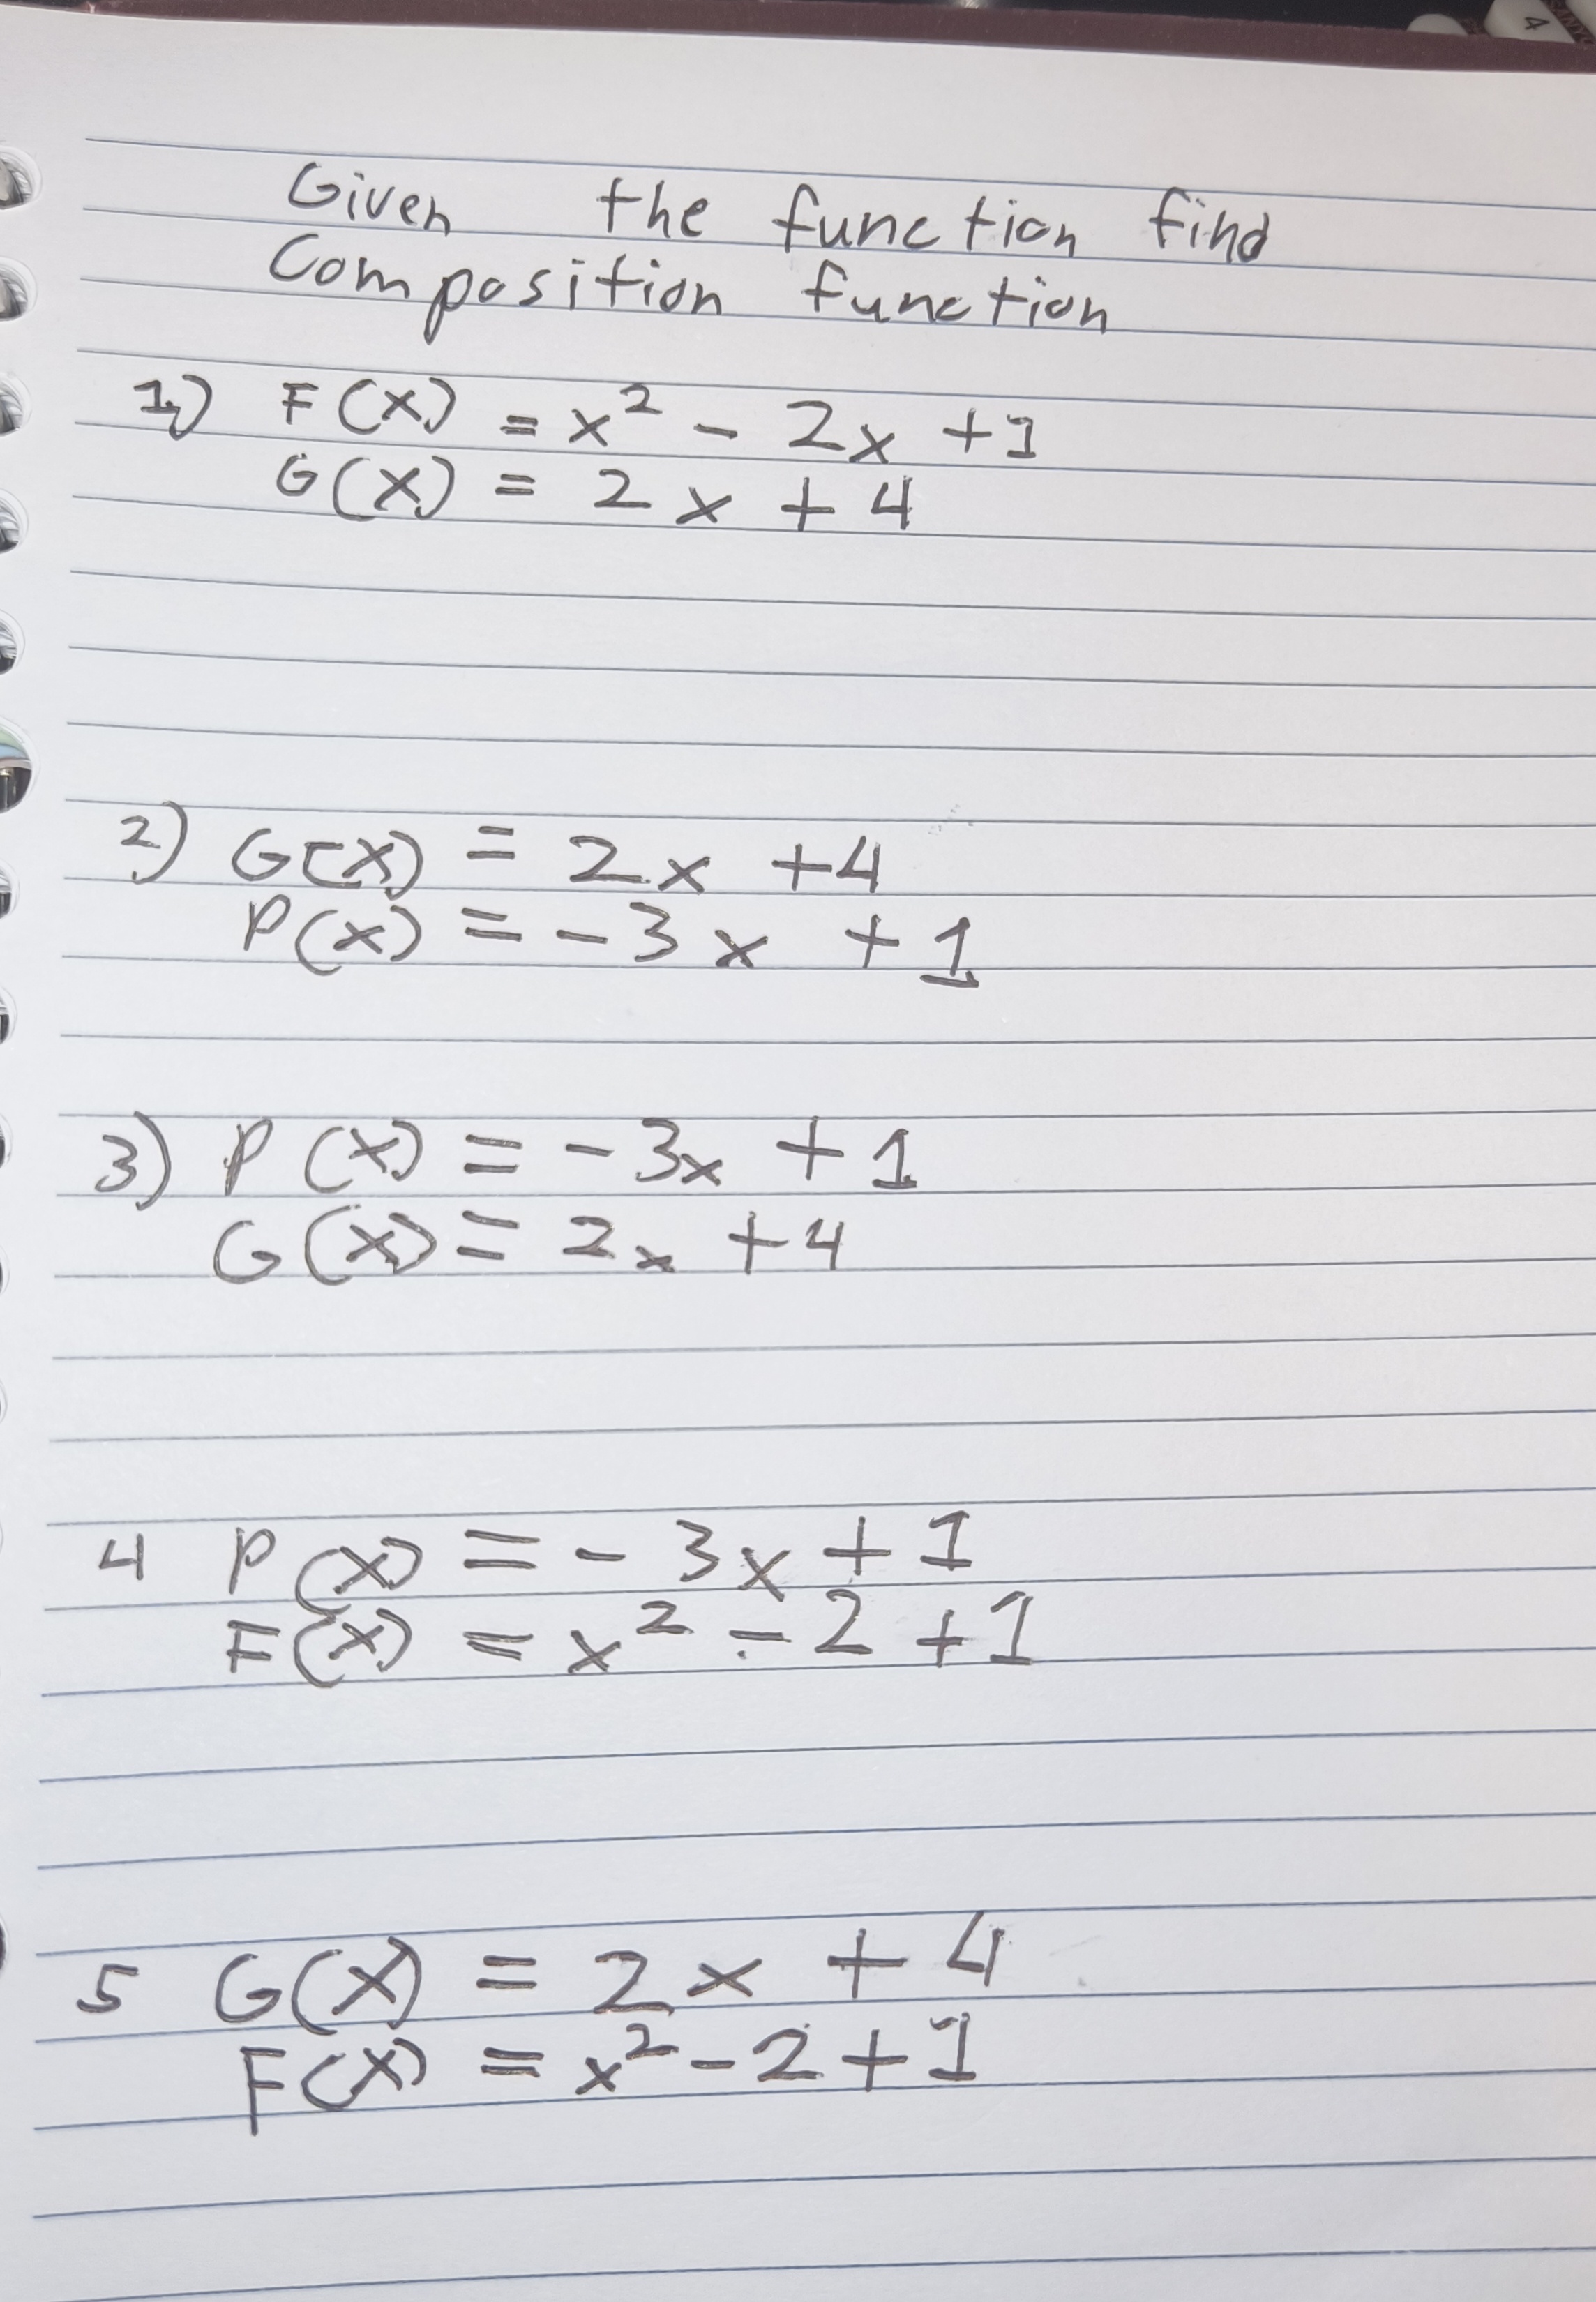 Given the function find
Composition function
1) F(x) = x² - 2x +1
G(x) = 2x + 4
2) G(x) = 2x +4
P(x) = -3x +1
3) P(x) = -3x +1
G(x) = 2x +4
4 P(x) = -3x +1
F(x) = x² - 2 +1
5 G(x) = 2x + 4
F(x) = x² - 2 +1